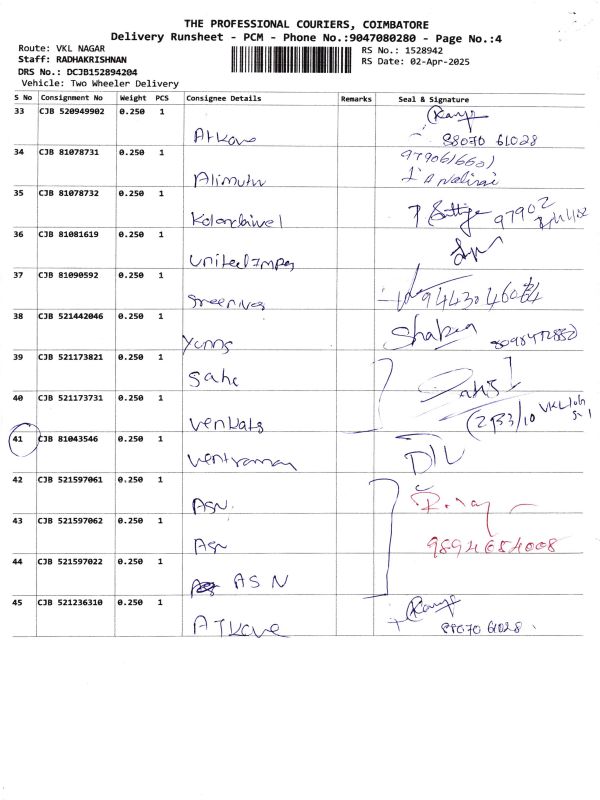 THE PROFESSIONAL COURIERS, COIMBATORE
Delivery Runsheet - PCM - Phone No.:9047080280 - Page No.:4
Route: VKL NAGAR RS No.: 1528942
Staff: RADHAKRISHNAN RS Date: 02-Apr-2025
DRS No.: DCJB152894204
Vehicle: Two Wheeler Delivery
S No Consignment No Weight PCS Consignee Details Remarks Seal & Signature
33 CJB 520949902 0.250 1
Atkove 88070 61028
34 CJB 81078731 0.250 1 9790616601
Alimuth
35 CJB 81078732 0.250 1 97902
36 CJB 81081619 0.250 1
United Impex
37 CJB 81090592 0.250 1
Sreenivas
38 CJB 521442046 0.250 1 Shabea
39 CJB 521173821 0.250 1
Sahe
40 CJB 521173731 0.250 1
Venkats
41 CJB 81043546 0.250 1
Ventraman
42 CJB 521597061 0.250 1
ASN
43 CJB 521597062 0.250 1
ASN 9894654008
44 CJB 521597022 0.250 1
ASN
45 CJB 521236310 0.250 1
ATKove 88070 61028